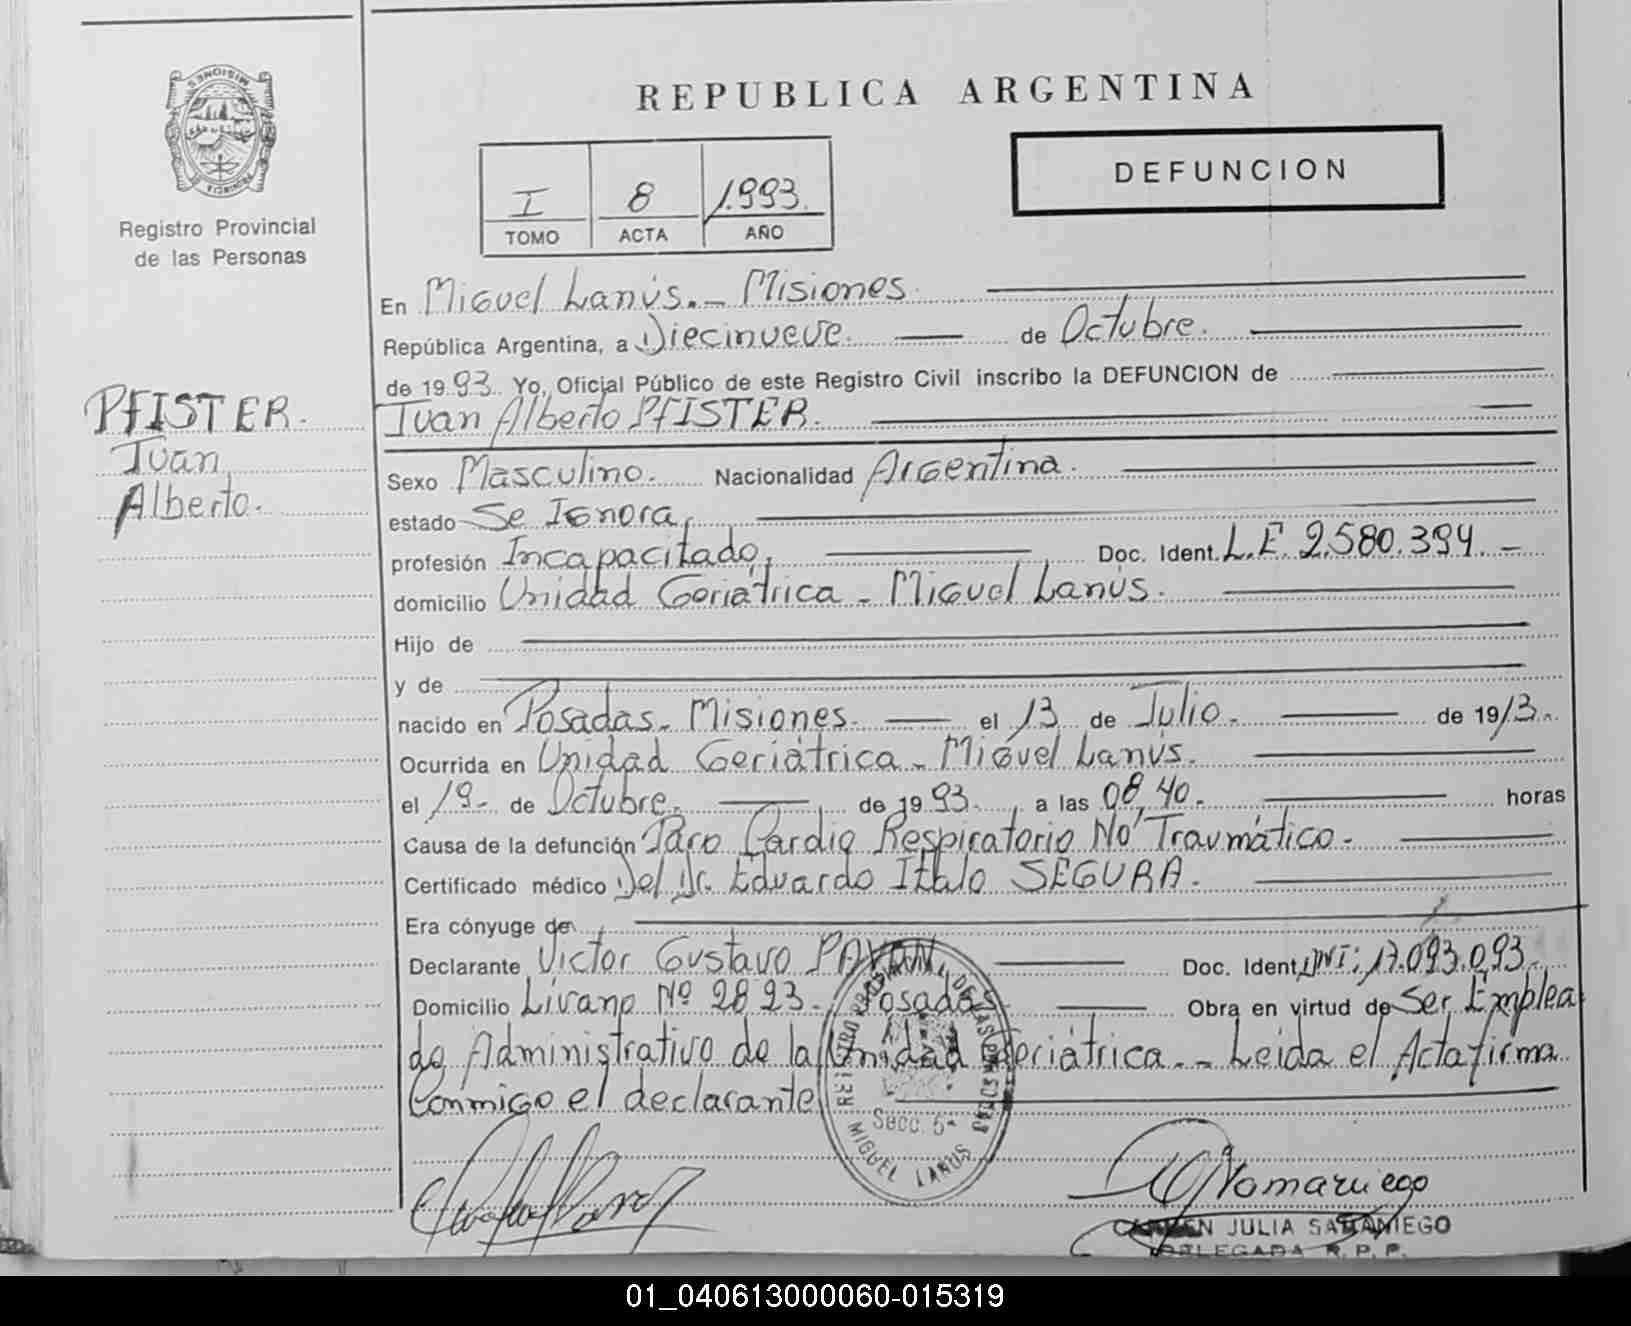 MISIONES
PROVINCIA DE
Registro Provincial
de las Personas
PFISTER.
Juan
Alberto.
REPUBLICA ARGENTINA
I 8 1.993.
TOMO ACTA AÑO
DEFUNCION
En Miguel Lanús. - Misiones
República Argentina, a Diecinueve. de Octubre.
de 1993. Yo, Oficial Público de este Registro Civil inscribo la DEFUNCION de
Juan Alberto PFISTER.
Sexo Masculino. Nacionalidad Argentina.
estado Se Ignora,
profesión Incapacitado, Doc. Ident. L.E 2.580.394. -
domicilio Unidad Geriátrica - Miguel Lanús.
Hijo de
y de
nacido en Posadas - Misiones. el 13 de Julio. de 1913.
Ocurrida en Unidad Geriátrica - Miguel Lanús.
el 19- de Octubre. de 1993. a las 08,40. horas
Causa de la defunción Paro Cardio Respiratorio No Traumático.
Certificado médico Del Dr. Eduardo Italo SEGURA.
Era cónyuge de
Declarante Victor Gustavo PAVON, Doc. Ident. DNI: 17.093.093.
Domicilio Livano Nº 2823. Posadas Obra en virtud de Ser Emplea
do Administrativo de la Unidad Geriátrica. - Leída el Acta firma
Conmigo el declarante
REGISTRO PROVINCIAL DE LAS PERSONAS
Secc. 5ª
MIGUEL LANUS
CARMEN JULIA SAMANIEGO
DELEGADA R. P. P.
01_040613000060-015319